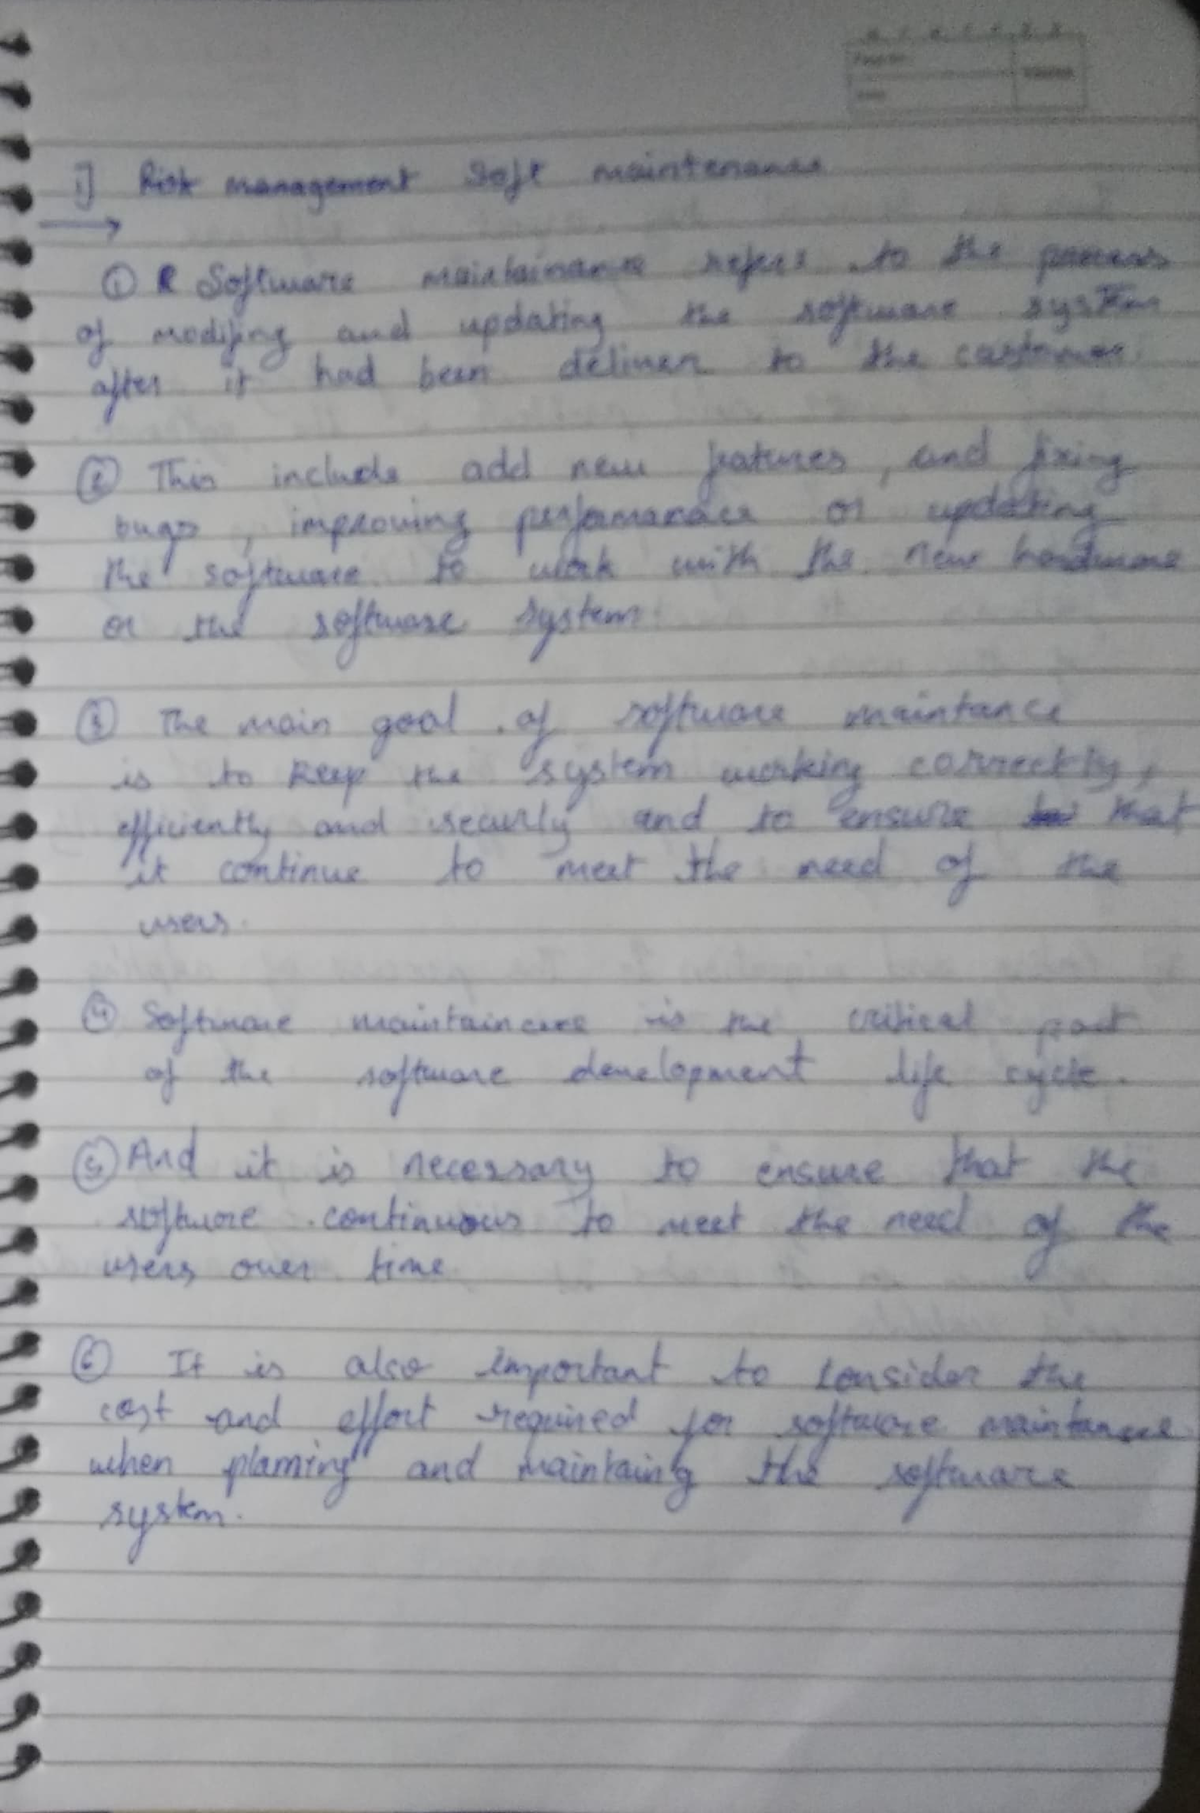 1] Risk management soft maintenance
① Software maintainance refers to the process
of modifing and updating the software system
after it had been deliver to the customer.
② This include add new features, and fixing
bugs, improving performanace or updating
the software to work with the new hardware
or the software system.
③ The main goal of software maintance
is to keep the system working correctly,
efficiently and securly and to ensure that
it continue to meet the need of the
users.
④ Software maintaincere is the critical part
of the software development life cycle.
⑤ And it is necessary to ensure that the
software continuous to meet the need of the
users over time
⑥ It is also important to consider the
cost and effort required for software maintance
when planning and maintaing the software
system.